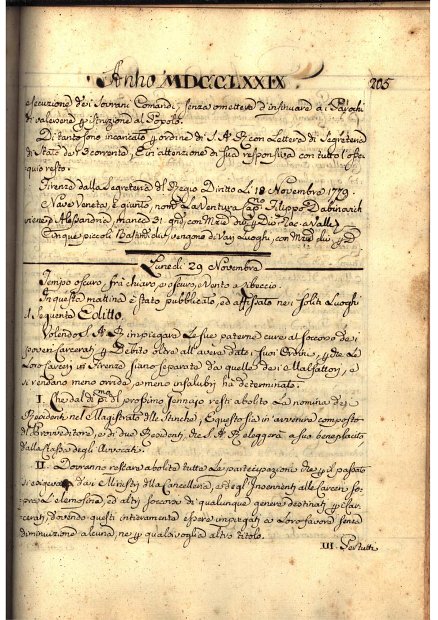 Anno MDCCLXXIX 205
esecuzione dei Sovrani Comandi, senza omettere d'insinuare ai Parochi
di valersene p istruzione al Popolo.
Di tanto sono incaricato p ordine di S. A. R. con Lettera di Segreteria
di Stato de 13 corrente, e in attenzione di sua responsiva con tutto l'osse
quio resto.
Firenze dalla Segreteria del Regio Diritto Li 18 Novembre 1779
Nave Veneta, è giunto, nom. La Ventura Cap. Filippo Dabinovich
viene d'Alessandria, manca 31 gni, con
Cinque piccoli Bastim. vengono da Varj Luoghi, con
Lunedì 29 Novembre
Tempo oscuro, frà chiaro, e oscuro, vento a libeccio.
In questa mattina è stato pubblicato, ed affissato nei soliti Luoghi
il seguente Editto.
Volendo S. A. R. impiegare Le sue paterne cure al soccorso dei
poveri Carcerati p Debito oltre all'avere dato i suoi Ordini, p che Le
Loro Carceri in Firenze siano separate da quelle dei Malfattori, e
si rendano meno orride, e meno insalubri hà determinato.
I. Che dal dì p.mo del prossimo Gennajo resti abolita La nomina dei
Residenti nel Magistrato delle Stinche, e questo sia in avvenire composto
del Provveditore, e di due Residenti, che S. A. R. eleggerà a suo beneplacito
dalla Classe degli Avvocati.
II. Dovranno restare abolite tutte Le partecipazioni che p il passato
si esigevano dai Ministri della Cancelleria, e degl'Inservienti alle Carceri so-
pra L'elemosine, ed altri soccorsi di qualunque genere destinati p i Car-
cerati, dovendo questi intieramente essere impiegati a Loro favore senza
diminuzione alcuna, ne p qualsivoglia altro titolo.
III. Per tutti